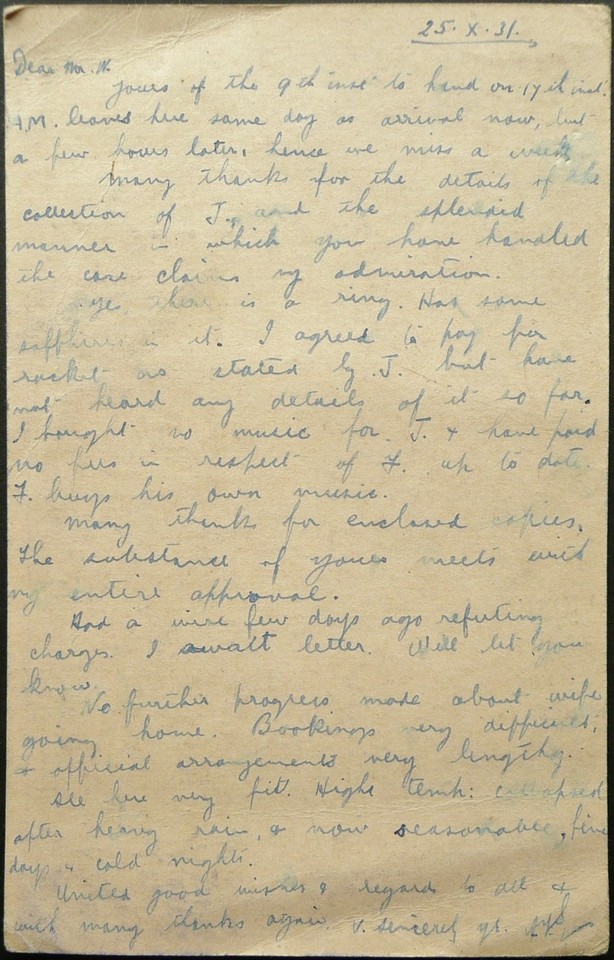 25. X. 31.
Dear Mr. W.
Yours of the 9th inst to hand on 17th inst.
A.M. leaves here same day as arrival now, but
a few hours later, hence we miss a week.
Many thanks for the details of the
collection of J., and the splendid
manner in which you have handled
the case claims my admiration.
Yes, there is a ring. Has some
sapphires in it. I agreed to pay for
racket as stated by J. but have
not heard any details of it so far.
I bought no music for J. & have paid
no fees in respect of F. up to date.
F. buys his own music.
Many thanks for enclosed copies.
The substance of yours meets with
my entire approval.
Had a wire few days ago refuting
charges. I await letter. Will let you
know.
No further progress made about wife
going home. Bookings very difficult,
& official arrangements very lengthy.
All here very fit. High temp: collapsed
after heavy rain, & now seasonable, fine
days & cold nights.
United good wishes & regards to all &
with many thanks again. V. sincerely yrs.